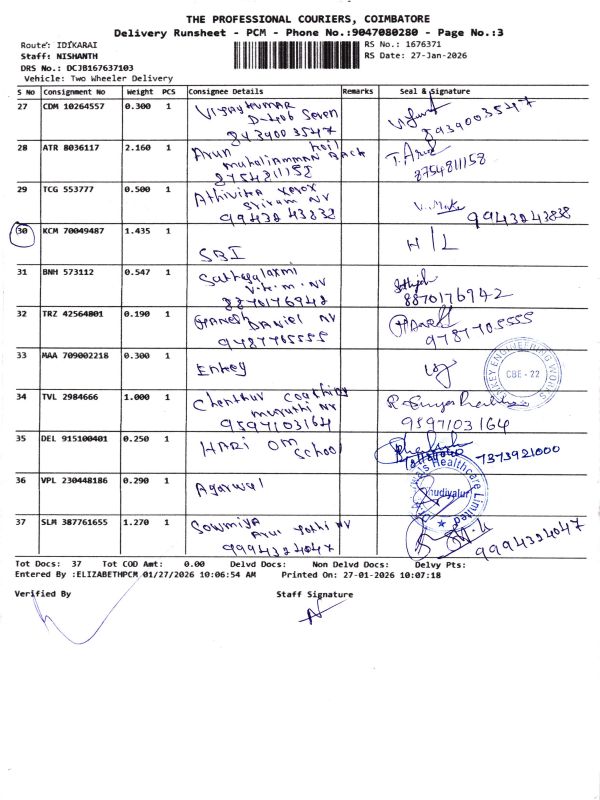 THE PROFESSIONAL COURIERS, COIMBATORE
Delivery Runsheet - PCM - Phone No.:9047080280 - Page No.:3
Route: IDIKARAI
Staff: NISHANTH
DRS No.: DCJB167637103
Vehicle: Two Wheeler Delivery
RS No.: 1676371
RS Date: 27-Jan-2026
S No Consignment No Weight PCS Consignee Details Remarks Seal & Signature
27 CDM 10264557 0.300 1 Vijaykumar
D-406 Seven
8439003547 8939003547
28 ATR 8036117 2.160 1 Arun
8754811158 T. Arul
8754811158
29 TCG 553777 0.500 1 Athivitra xerox
Sriram NV
9943843838 9943843838
30 KCM 70049487 1.435 1
SBI H/L
31 BNH 573112 0.547 1 Sathyalaxmi
V.k.m. NV
8870176942 8870176942
32 TRZ 42564801 0.190 1 Ganesh Daniel NV
9787705555 9787705555
33 MAA 709002218 0.300 1
Enkey
ENGINEERING WORKS
CBE - 22
34 TVL 2984666 1.000 1 Chenthur Coaching
Maruthi NV
9597103164 9597103164
35 DEL 915100401 0.250 1 HARI OM
School 7373921000
36 VPL 230448186 0.290 1
Agarwal
Healthcare Limited
37 SLM 387761655 1.270 1 Sowmiya
Arul Jothi NV
9994324047 9994324047
Tot Docs: 37 Tot COD Amt: 0.00 Delvd Docs: Non Delvd Docs: Delvy Pts:
Entered By :ELIZABETHPCM 01/27/2026 10:06:54 AM Printed On: 27-01-2026 10:07:18
Verified By Staff Signature